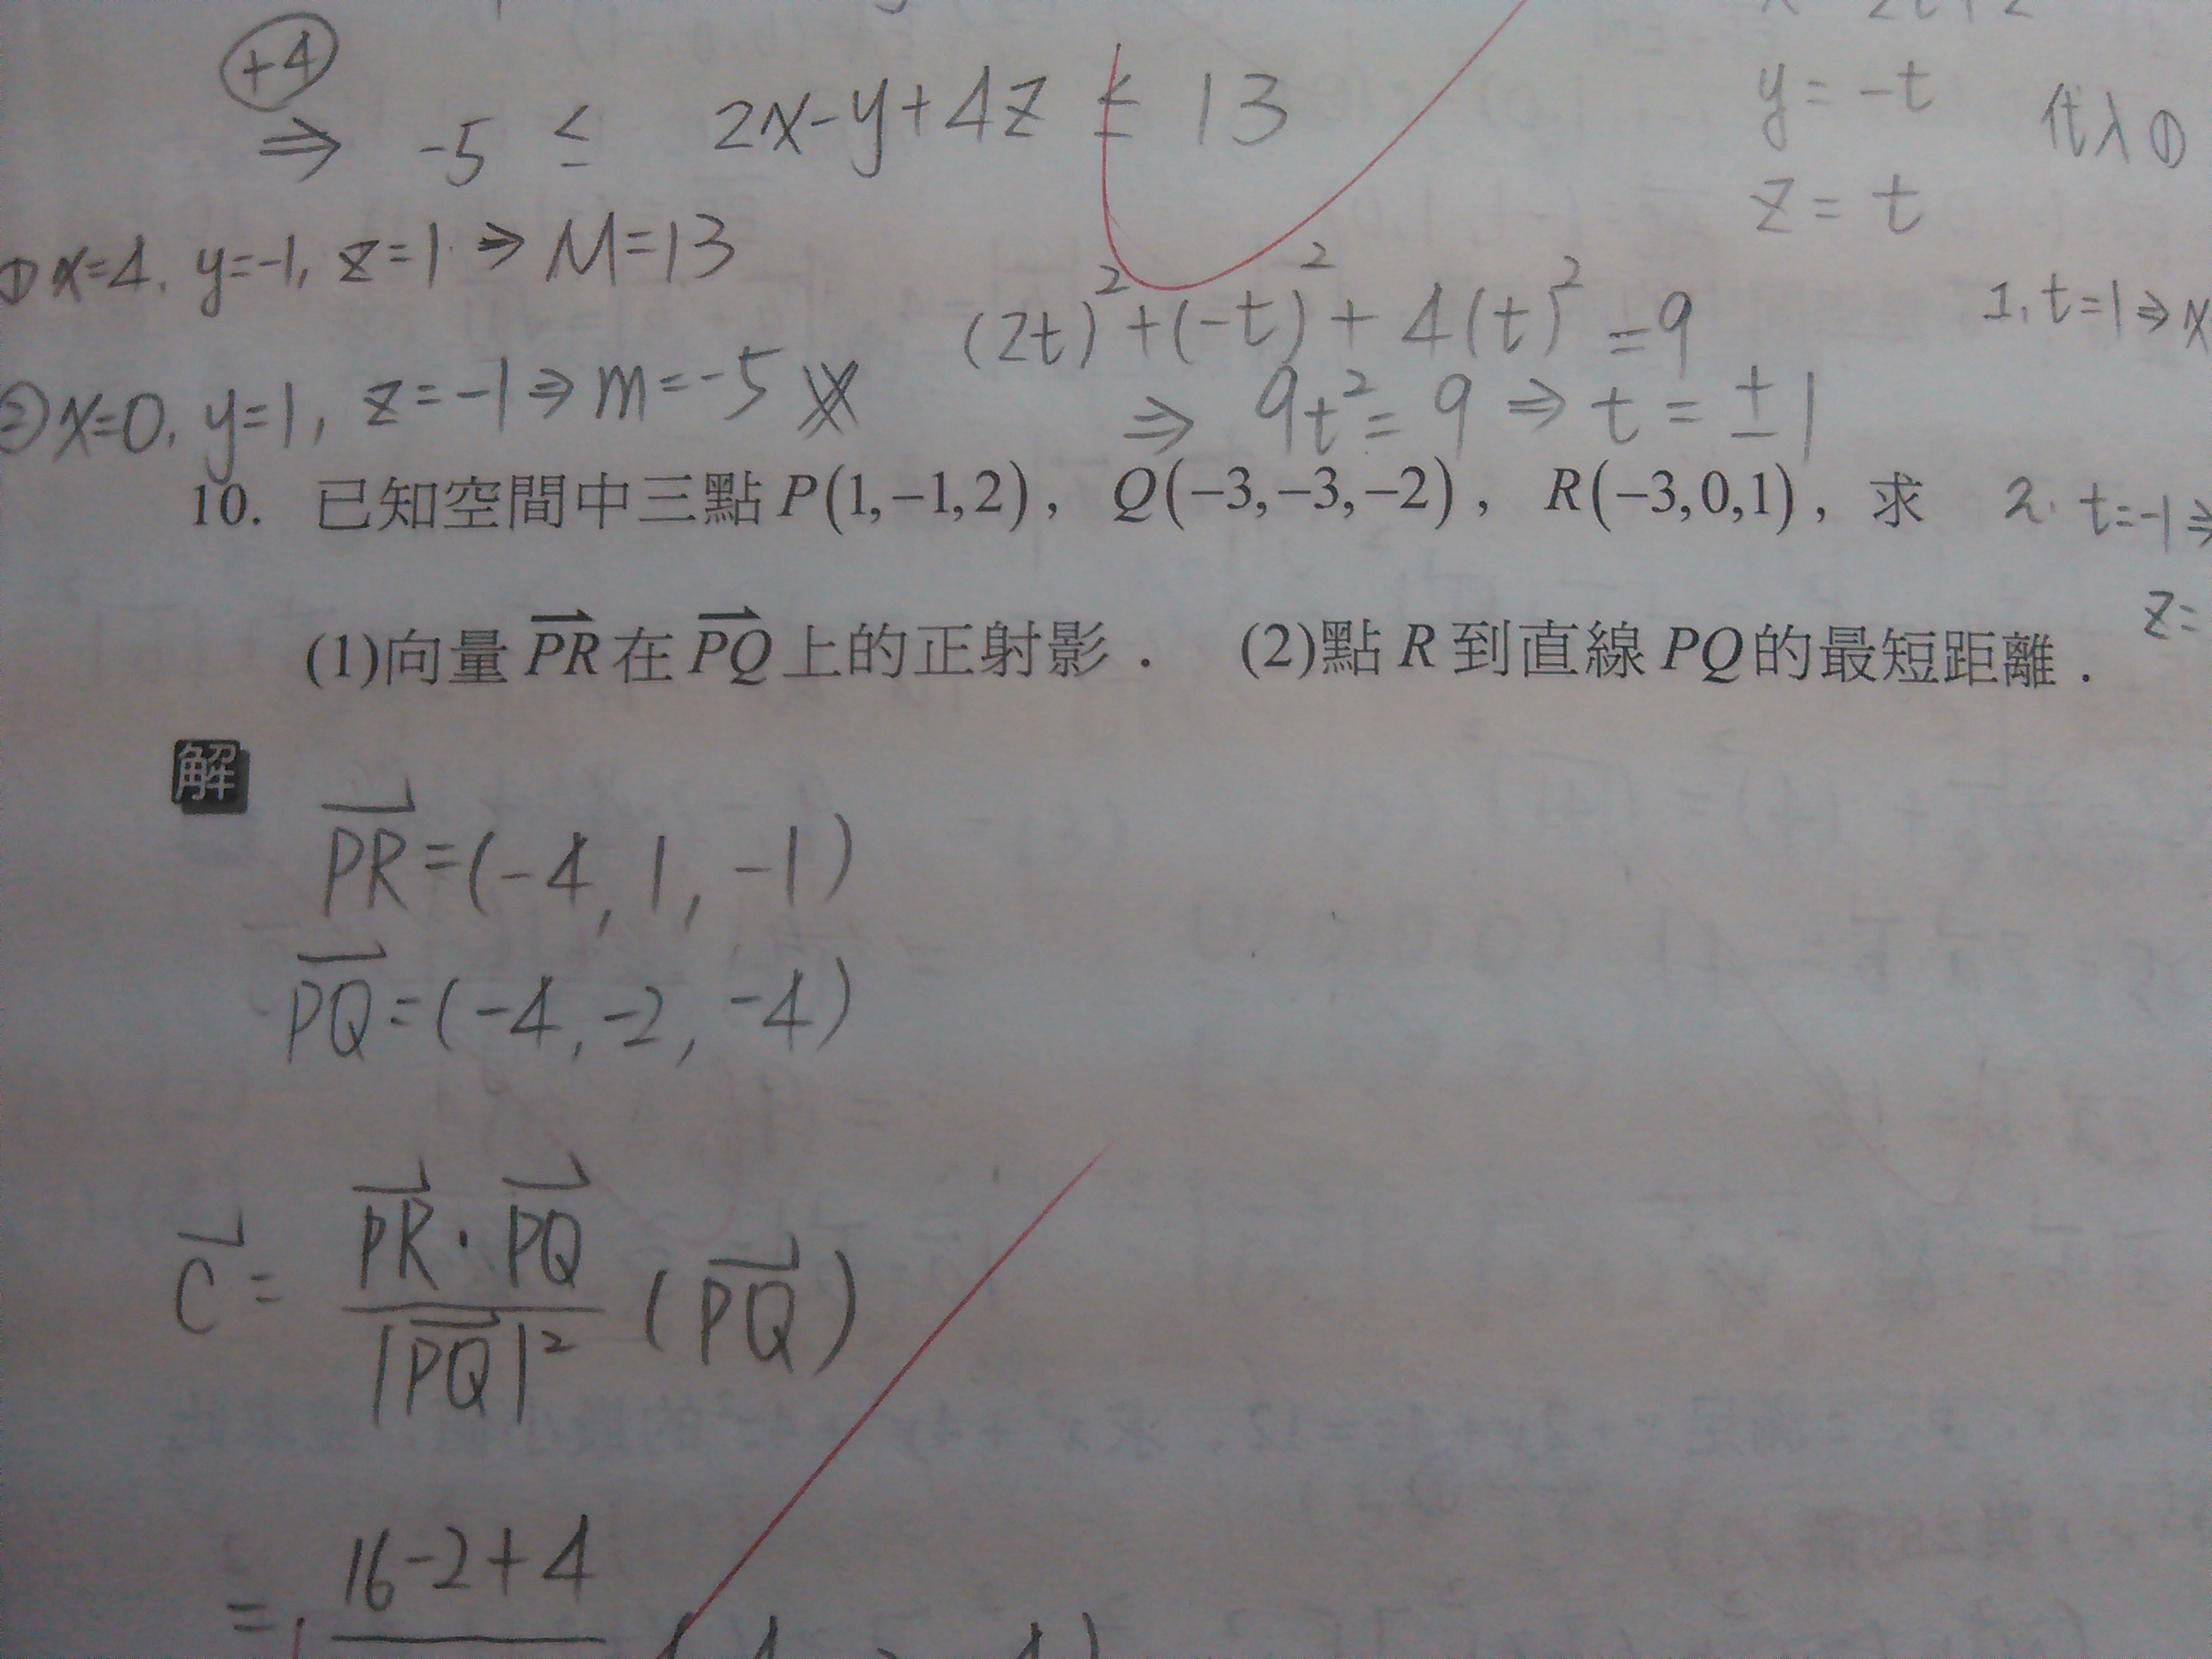 +4
⇒ -5 ≤ 2x-y+4z ≤ 13
y = -t
代入①
z = t
①x=4, y=-1, z=1 ⇒ M=13
(2t)²+(-t)²+4(t)²=9
1. t=1⇒x
②x=0, y=1, z=-1⇒m=-5
⇒ 9t²=9 ⇒ t=±1
10. 已知空間中三點P(1,−1,2), Q(−3,−3,−2), R(−3,0,1), 求
2. t=-1⇒
z=
(1)向量PR在PQ上的正射影. (2)點R到直線PQ的最短距離.
解
PR=(-4,1,-1)
PQ=(-4,-2,-4)
C= PR·PQ / |PQ|² (PQ)
= 16-2+4